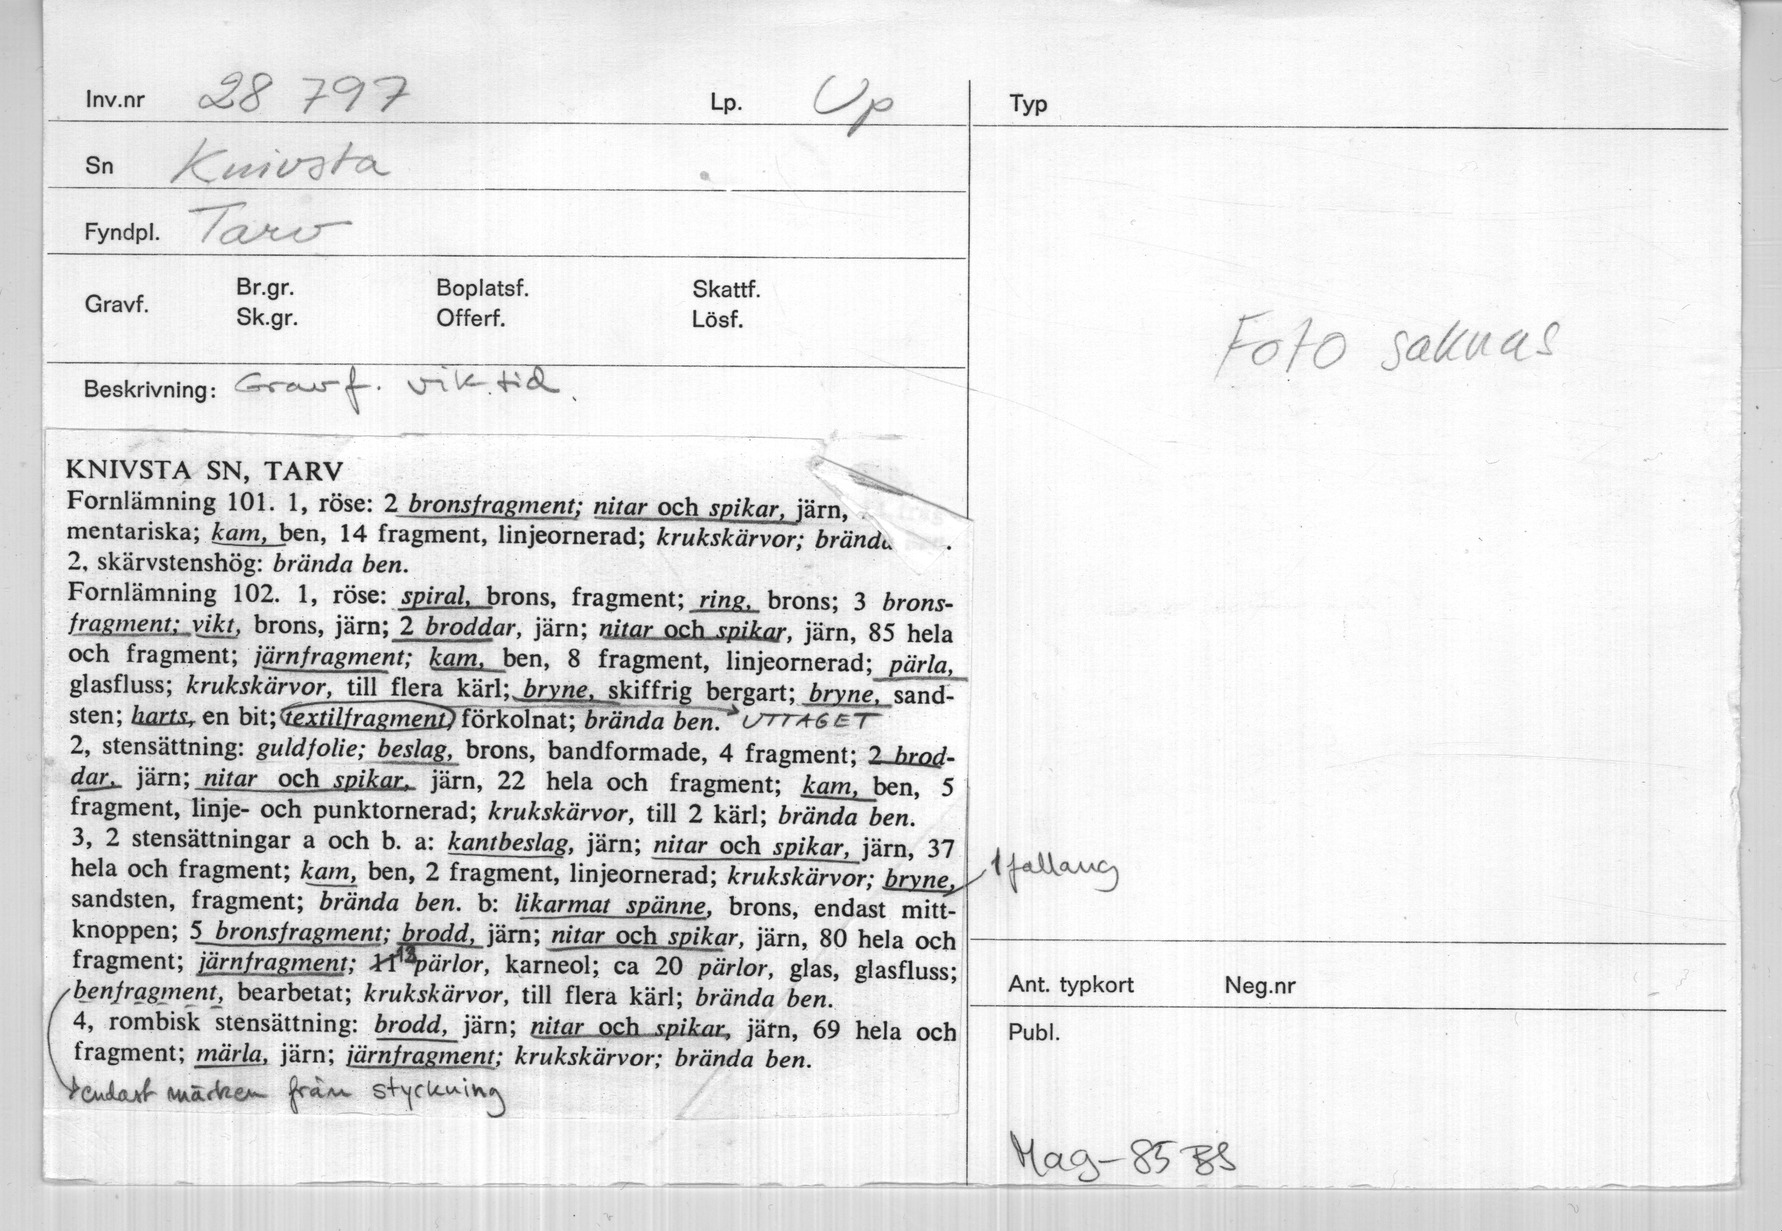 Inv.nr 28 797 Lp. Up
Sn Knivsta
Fyndpl. Tarv
Gravf. Br.gr. Boplatsf. Skattf.
Sk.gr. Offerf. Lösf.
Beskrivning: Gravf. vik.tid.
KNIVSTA SN, TARV
Fornlämning 101. 1, röse: 2 bronsfragment; nitar och spikar, järn,
mentariska; kam, ben, 14 fragment, linjeornerad; krukskärvor;
2, skärvstenshög: brända ben.
Fornlämning 102. 1, röse: spiral, brons, fragment; ring, brons; 3 brons-
fragment; vikt, brons, järn; 2 broddar, järn; nitar och spikar, järn, 85 hela
och fragment; järnfragment; kam, ben, 8 fragment, linjeornerad; pärla,
glasfluss; krukskärvor, till flera kärl; bryne, skiffrig bergart; bryne, sand-
sten; harts, en bit; textilfragment, förkolnat; brända ben. UTTAGET
2, stensättning: guldfolie; beslag, brons, bandformade, 4 fragment; 2 brod-
dar, järn; nitar och spikar, järn, 22 hela och fragment; kam, ben, 5
fragment, linje- och punktornerad; krukskärvor, till 2 kärl; brända ben.
3, 2 stensättningar a och b. a: kantbeslag, järn; nitar och spikar, järn, 37
hela och fragment; kam, ben, 2 fragment, linjeornerad; krukskärvor; bryne,
sandsten, fragment; brända ben. b: likarmat spänne, brons, endast mitt-
knoppen; 5 bronsfragment; brodd, järn; nitar och spikar, järn, 80 hela och
fragment; järnfragment; 11 12 pärlor, karneol; ca 20 pärlor, glas, glasfluss;
benfragment, bearbetat; krukskärvor, till flera kärl; brända ben.
4, rombisk stensättning: brodd, järn; nitar och spikar, järn, 69 hela och
fragment; märla, järn; järnfragment; krukskärvor; brända ben.
endast märken från styckning
Typ
Foto saknas
1 fallang
Ant. typkort Neg.nr
Publ.
Mag-85 BS